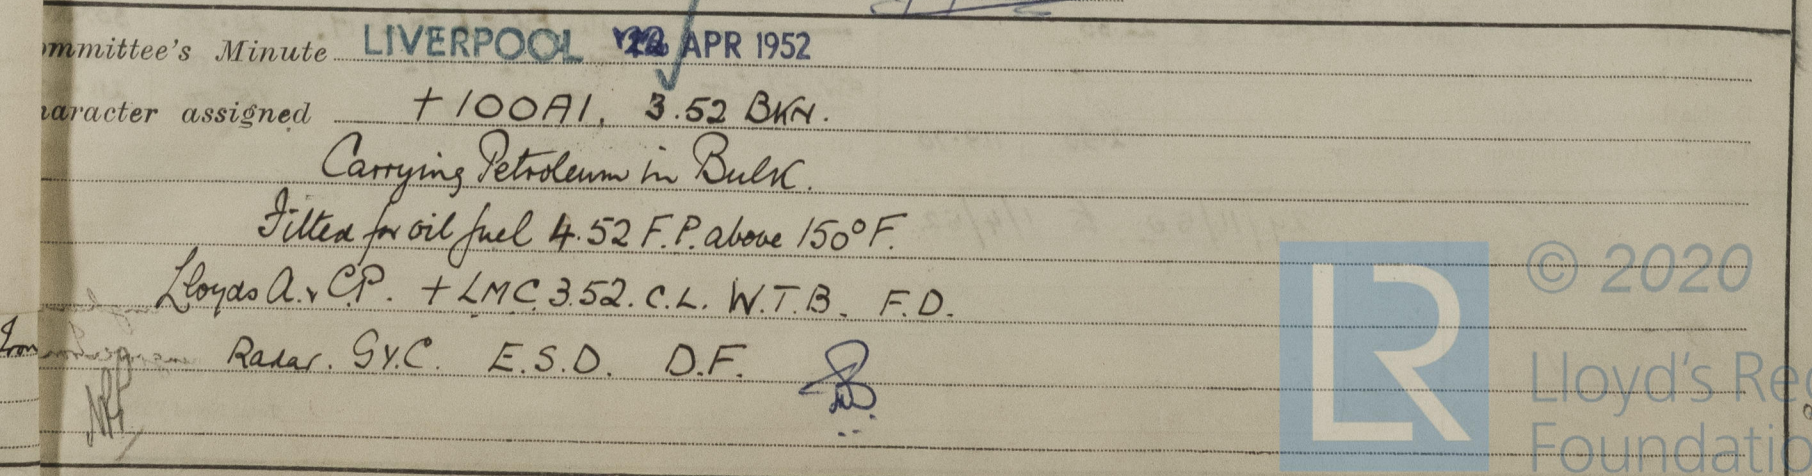 ommittee's Minute LIVERPOOL APR 1952
haracter assigned + 100A1. 3.52 BKN.
Carrying Petroleum in Bulk.
Fitted for oil fuel 4.52 F.P. above 150°F.
Lloyds A. & C.P. + LMC 3.52. C.L. W.T.B. F.D.
Radar. GY.C. E.S.D. D.F.
LR
© 2020
Lloyd's Reg
Foundatio